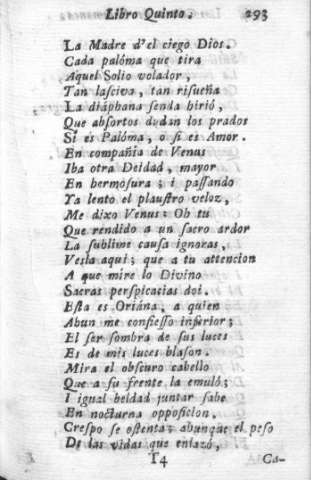 Libro Quinto. 293
La Madre d'el ciego Dios.
Cada palóma que tira
Aquel Solio volador,
Tan lasciva, tan risueña
La diáphana senda hirió,
Que absortos dudan los prados
Si es Palóma, o si es Amor.
En compañia de Venus
Iba otra Deidad, mayor
En hermosura; i passando
Ya lento el plaustro veloz,
Me dixo Venus: Oh tu
Que rendido a un sacro ardor
La sublime causa ignoras,
Vesla aqui; que a tu attencion
A que mire lo Divino
Sacras perspicacias doi.
Esta es Oriána, a quien
Abun me confiesso inferior;
El ser sombra de sus luces
Es de mis luces blason.
Mira el obscuro cabello
Que a su frente la emuló;
I igual beldad juntar sabe
En nocturna opposicion.
Crespo se ostenta; abunque el peso
De las vidas que enlazó,
T4 Ca-